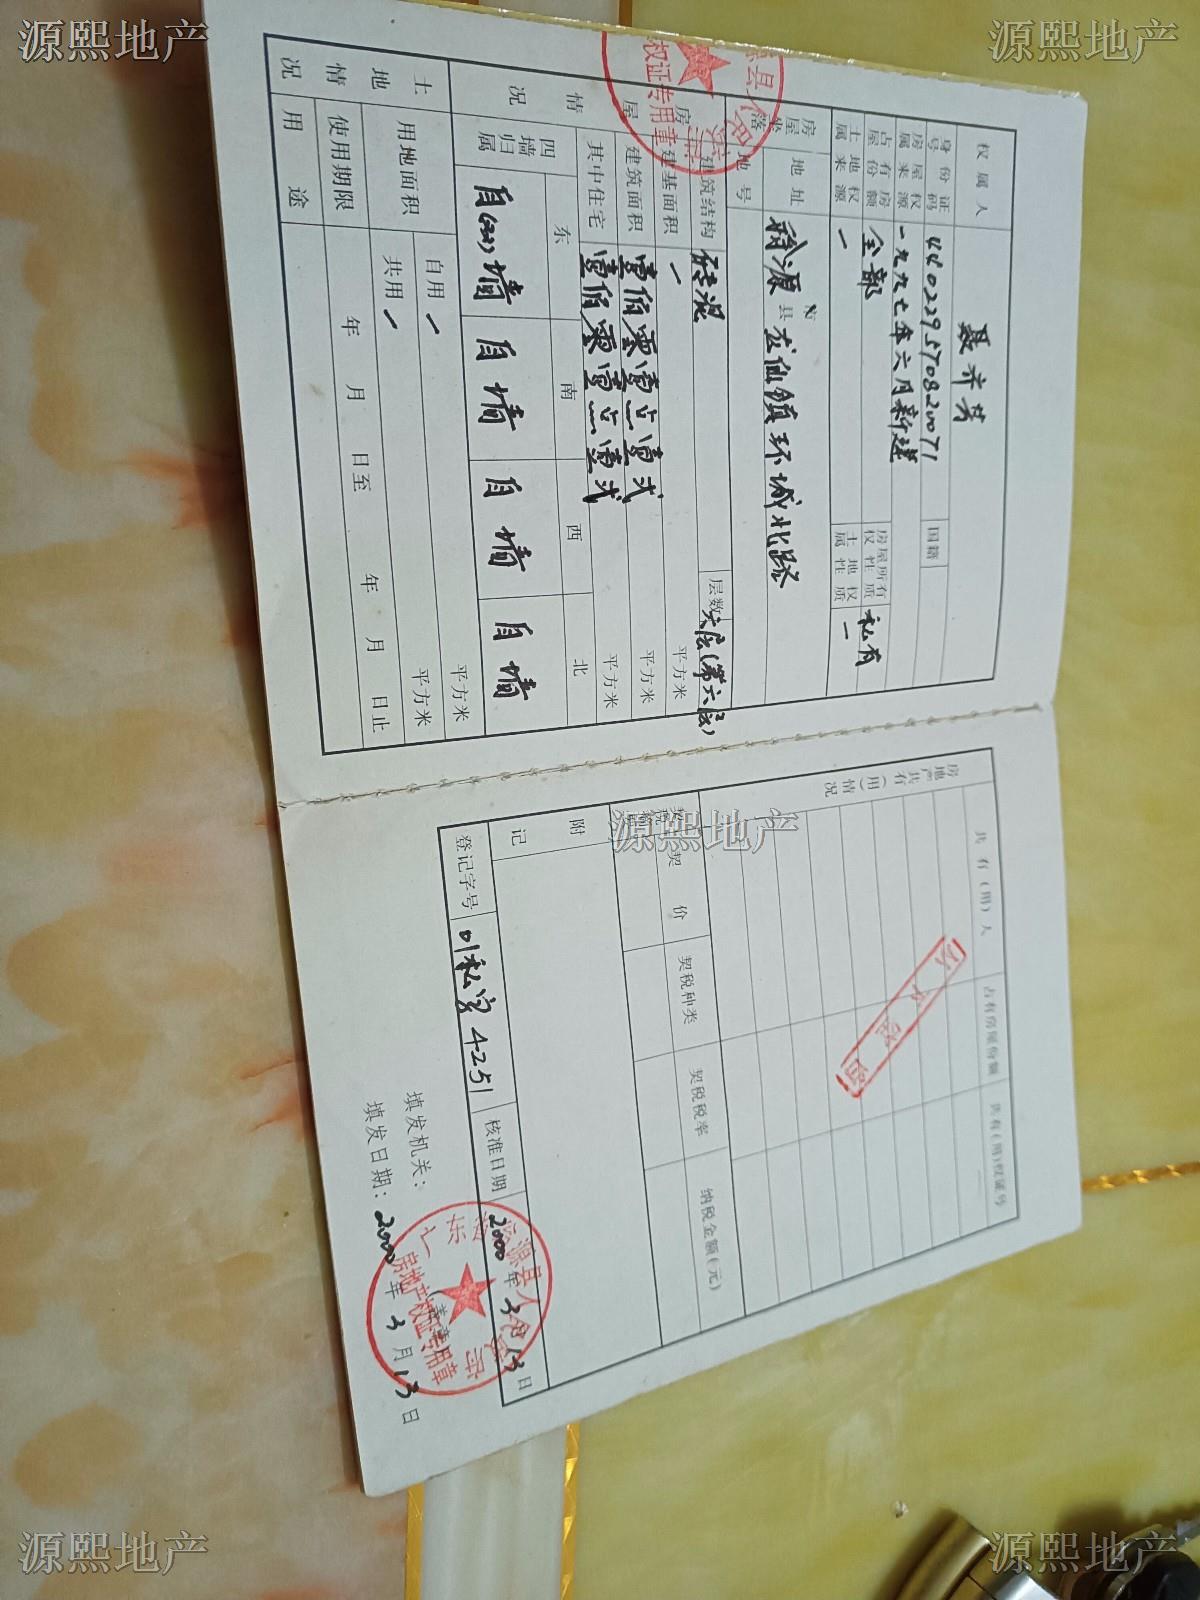 源熙地产
源熙地产
权属人
聂齐芳
身份证号码
440229570820071
国籍
房屋权属来源
一九九七年六月新建
占有房屋份额
全部
房屋所有权性质
私有
土地权属来源
一
土地权属性质
一
房屋坐落
地址
翁源县龙仙镇环城北路
地号
房屋情况
建筑结构
砖混
层数
六层(第六层)
建基面积
一
平方米
建筑面积
壹佰零壹点壹弍
平方米
其中住宅
壹佰零壹点壹弍
平方米
四墙归属
东
南
西
北
自墙
自墙
自墙
自墙
土地情况
用地面积
自用
一
平方米
共用
一
平方米
使用期限
年 月 日至 年 月 日止
用途
权证专用章
房地产共有(用)情况
共有(用)人
占有房屋份额
共有(用)权证号
源熙地产
契价
契税种类
契税税率
纳税金额(元)
附记
登记字号
叶私字4251
核准日期
2000年3月13日
填发机关:
(盖章)
填发日期:2000年3月13日
广东省翁源县人民政府
房地产权证专用章
源熙地产
源熙地产